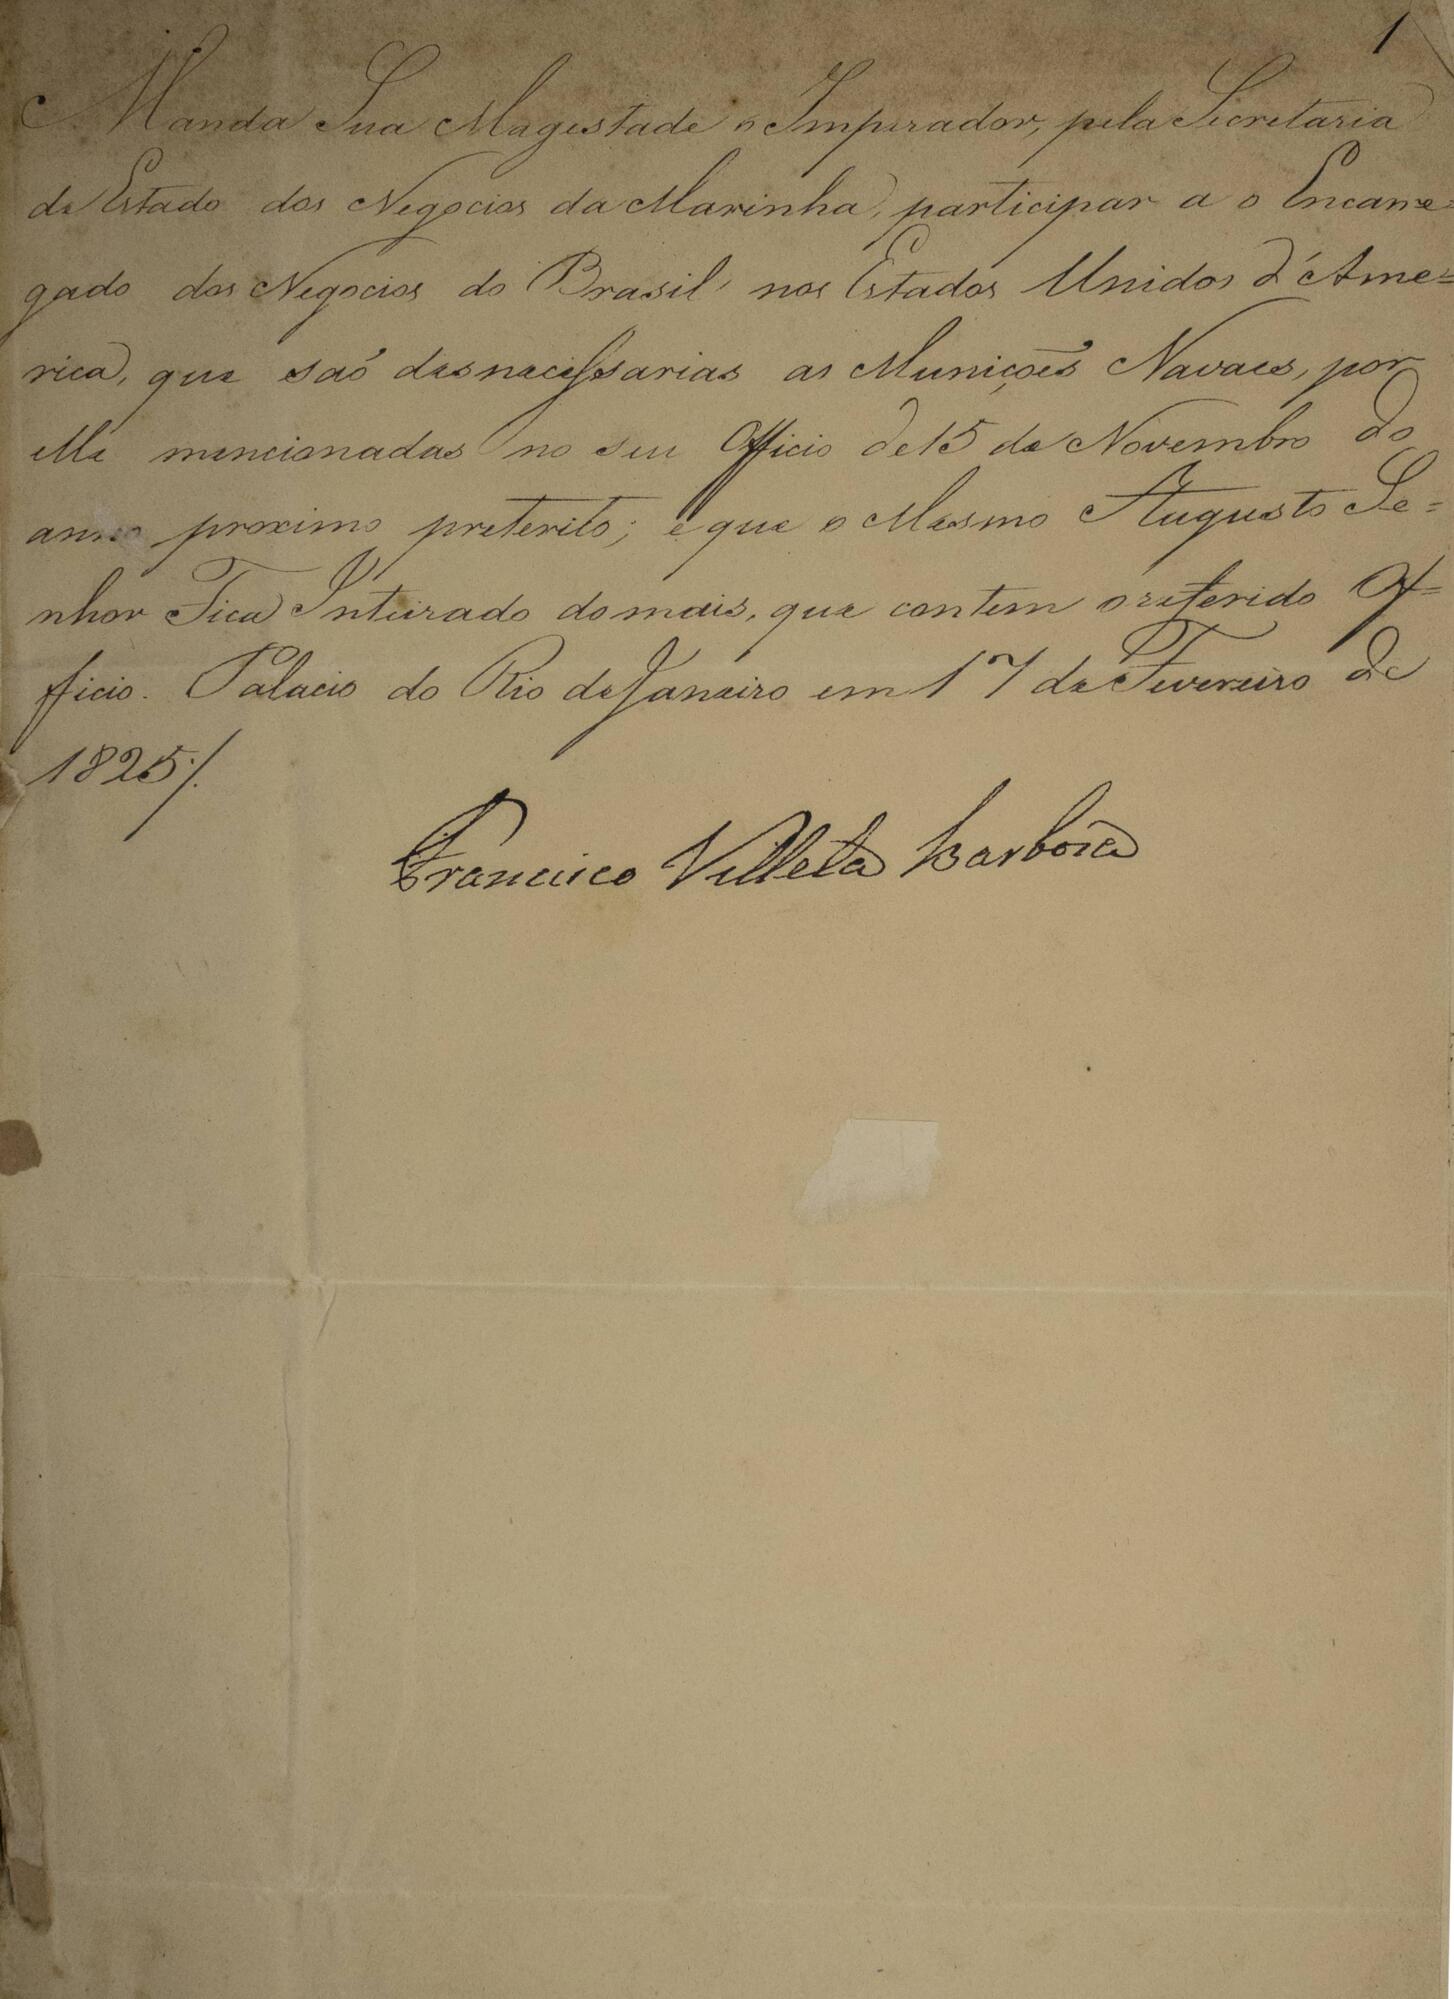 1
Manda Sua Magestade o Imperador, pela Secretaria
de Estado dos Negocios da Marinha, participar a o Encarre=
gado dos Negocios do Brasil nos Estados Unidos d'Ame=
rica, que saõ desnecessarias as Muniçoẽs Navaes, por
elle mencionadas no seu Officio de 15 de Novembro do
anno proximo preterito; e que o Mesmo Augusto Se=
nhor Fica Inteirado do mais, que contem o referido Of=
ficio. Palacio do Rio de Janeiro em 17 de Fevereiro de
1825/.
Francisco Villela Barboza